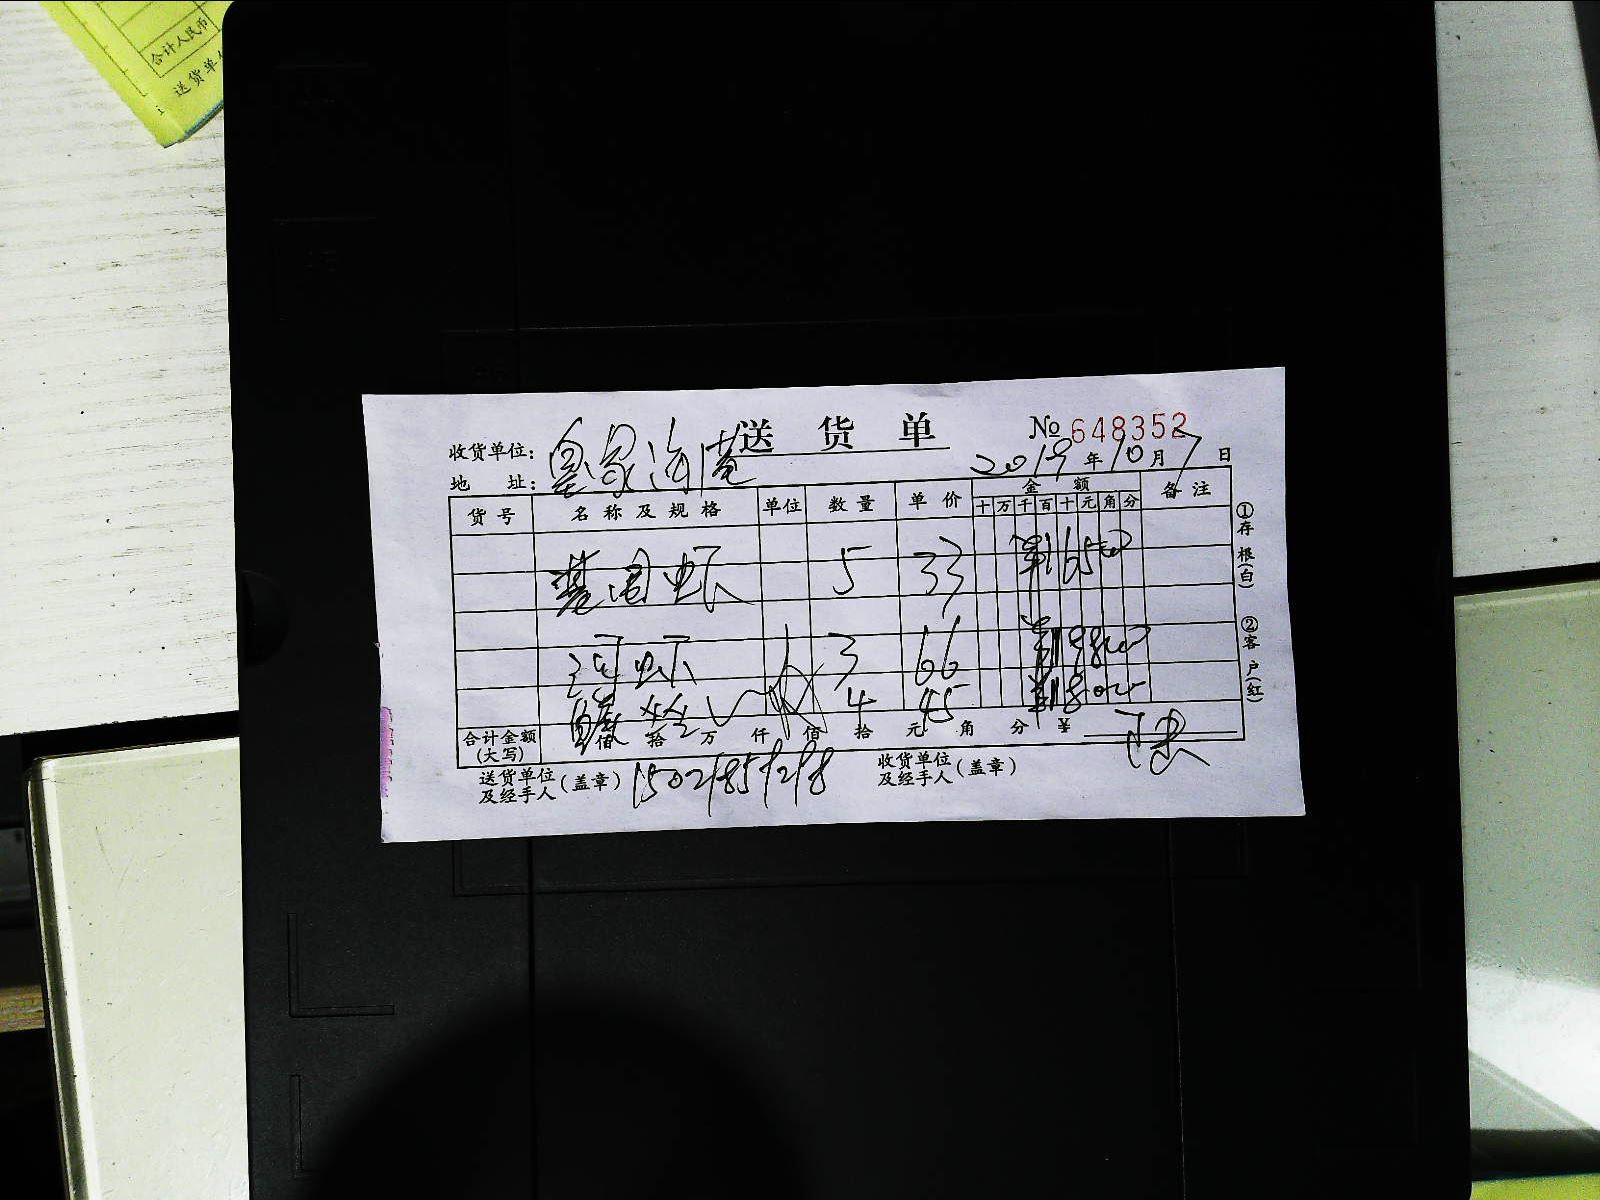 合计人民币
送货单
送货单
№ 648352
收货单位:
2019年10月7日
地址:
货号 名称及规格 单位 数量 单价 金额 备注
十 万 千 百 十 元 角 分
基围虾 5 33 16500
河虾 3 66 19800
4 45 180
合计金额(大写) 佰 拾 万 仟 佰 拾 元 角 分 ¥
送货单位及经手人(盖章) 15021859218 收货单位及经手人(盖章)
①存根(白) ②客户(红)